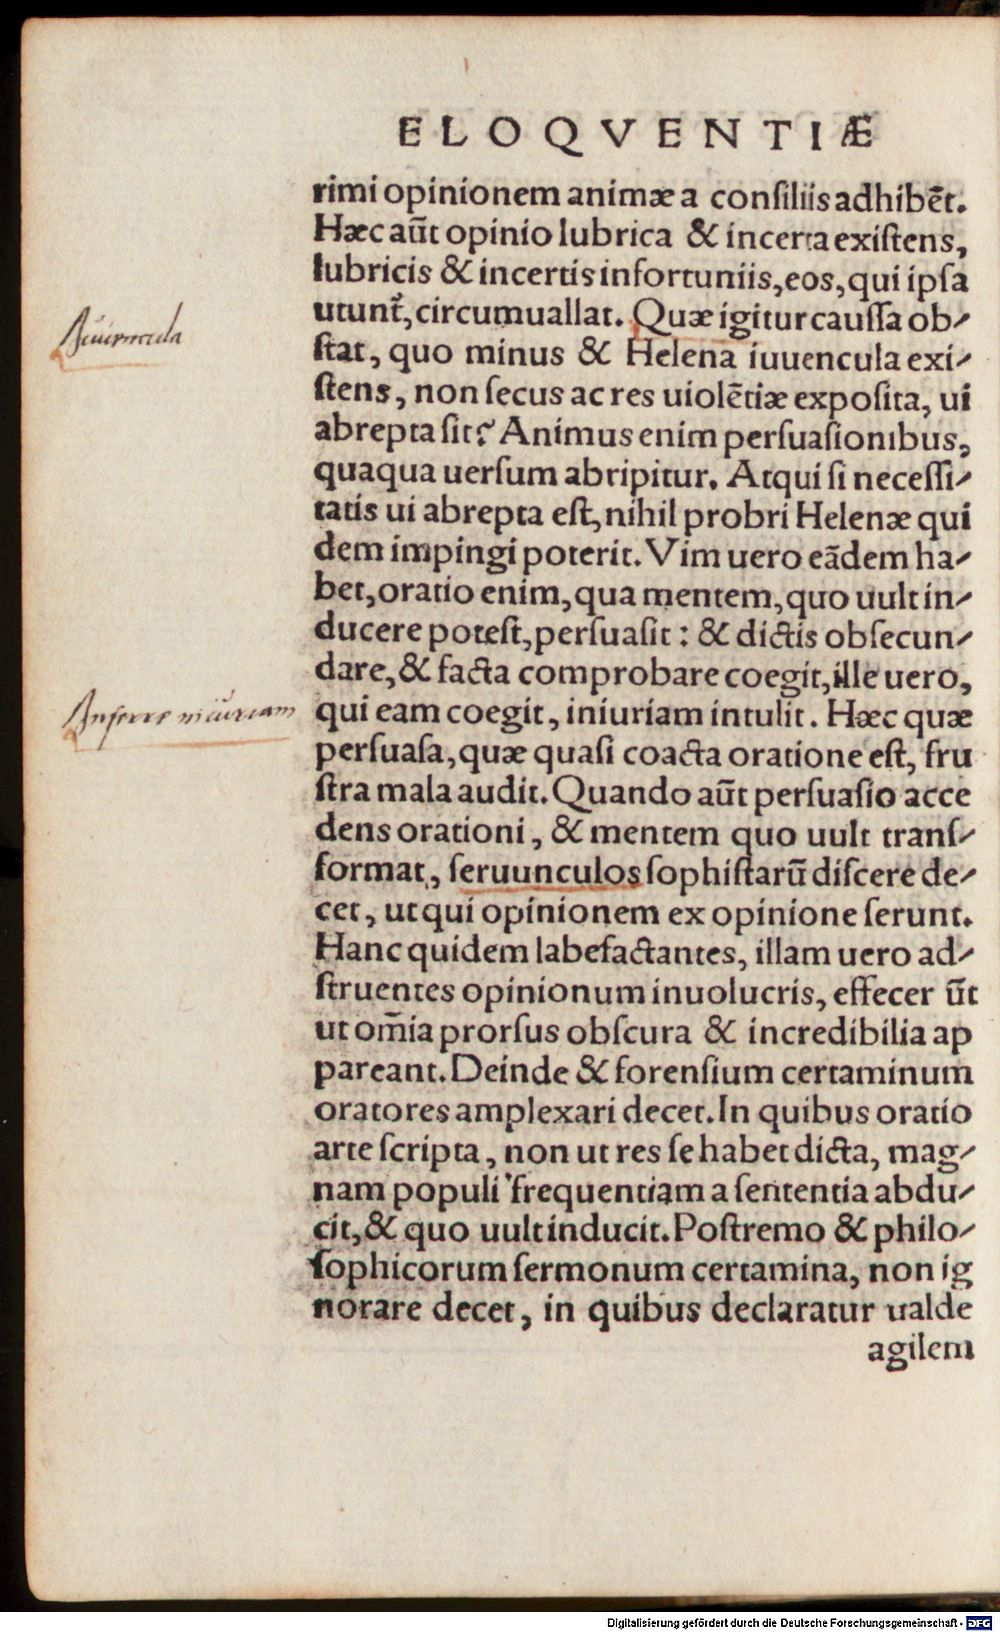 ELOQVENTIÆ
rimi opinionem animæ a consiliis adhibēt.
Hæc aūt opinio lubrica & incerta existens,
lubricis & incertis infortuniis, eos, qui ipsa
utunt᷑, circumuallat. Quæ igitur caussa ob-
stat, quo minus & Helena iuuencula exi-
stens, non secus ac res uiolētiæ exposita, ui
abrepta sit? Animus enim persuasionibus,
quaqua uersum abripitur. Atqui si necessi-
tatis ui abrepta est, nihil probri Helenæ qui
dem impingi poterit. Vim uero eādem ha-
bet, oratio enim, qua mentem, quo uult in-
ducere potest, persuasit : & dictis obsecun-
dare, & facta comprobare coegit, ille uero,
qui eam coegit, iniuriam intulit. Hæc quæ
persuasa, quæ quasi coacta oratione est, fru
stra mala audit. Quando aūt persuasio acce
dens orationi, & mentem quo uult trans-
format, seruunculos sophistarū discere de-
cet, ut qui opinionem ex opinione serunt.
Hanc quidem labefactantes, illam uero ad-
struentes opinionum inuolucris, effecer ūt
ut om̄ia prorsus obscura & incredibilia ap
pareant. Deinde & forensium certaminum
oratores amplexari decet. In quibus oratio
arte scripta, non ut res se habet dicta, mag-
nam populi frequentiam a sententia abdu-
cit, & quo uult inducit. Postremo & philo-
sophicorum sermonum certamina, non ig
norare decet, in quibus declaratur ualde
agilem
Iuuencula
Inferre iniuriam
Digitalisierung gefördert durch die Deutsche Forschungsgemeinschaft - DFG